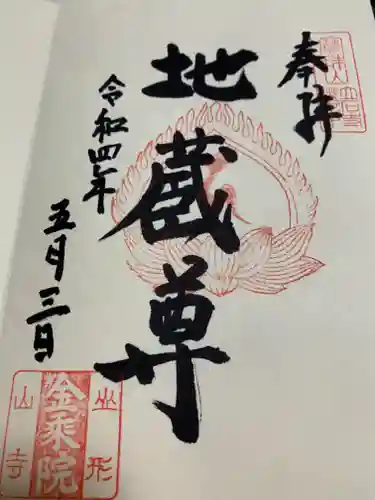 奉拝
地蔵尊
令和四年
五月三日
山形
山寺
金乘院